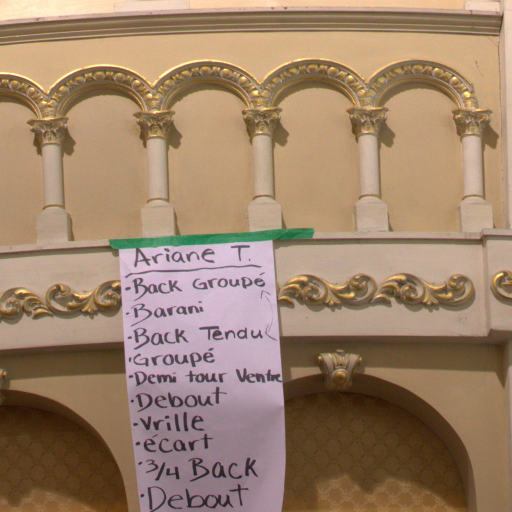 Ariane T.
·Back Groupé
·Barani
·Back Tendu
·Groupé
·Demi tour Ventre
·Debout
·Vrille
·écart
·3/4 Back
·Debout